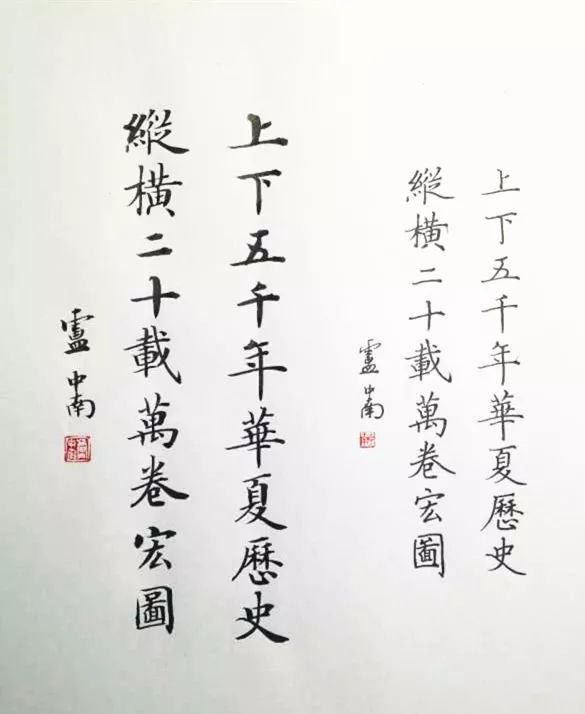 上下五千年華夏歷史
縱橫二十載萬卷宏圖
盧中南
上下五千年華夏歷史
縱橫二十載萬卷宏圖
盧中南